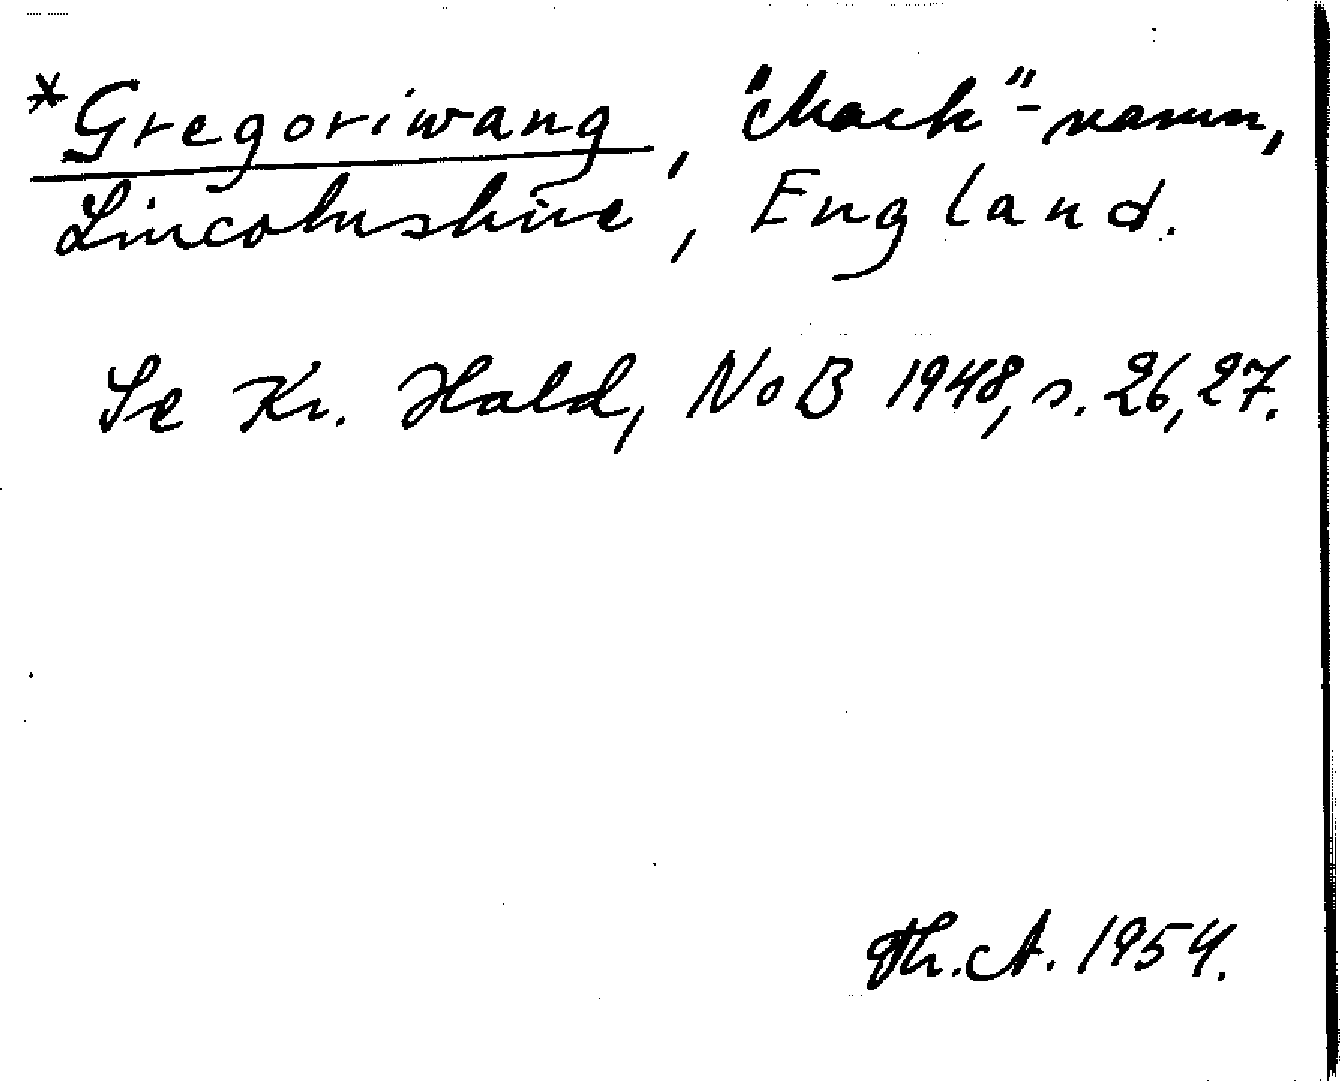 *Gregoriwang, "Mark"-namn,
Lincolnshire, England.
Se Kr. Hald, NoB 1948, s. 26, 27.
Th. A. 1954.